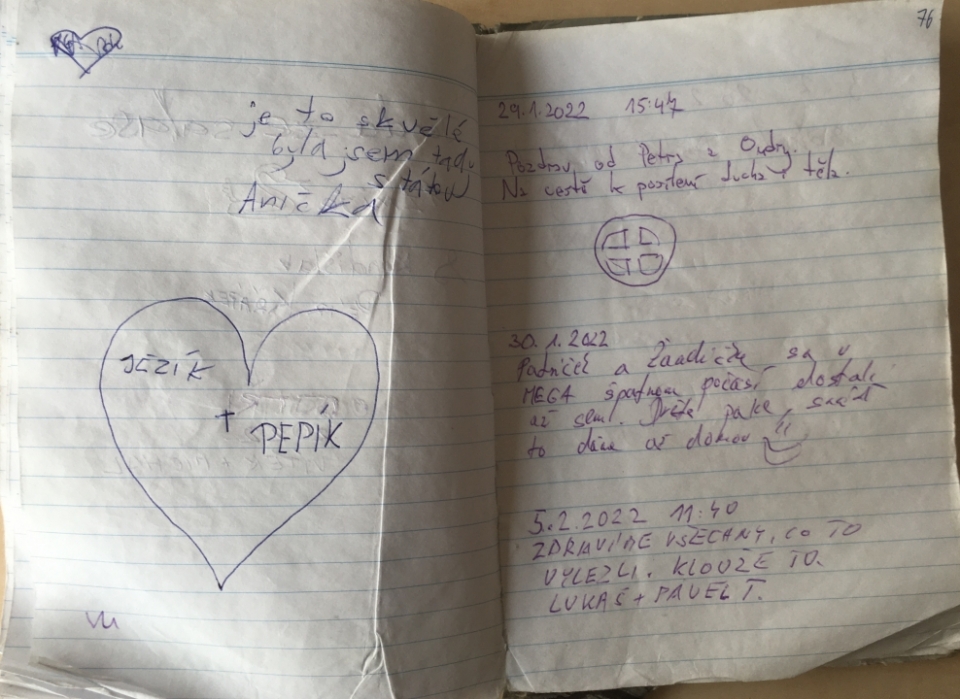 je to skvělé
byla jsem tady
s tátou
Anička
JEZÍK
+
PEPÍK
76
29.1.2022 15:47
Pozdrav od Petry z Oudry.
Na cestě k posílení ducha i těla.
30.1.2022
Patriček a Žandiček sa v
MEGA špatnem počasí dostali
až sem!. Prša jako, snad
to dáme až domov
5.2.2022 11:40
ZDRAVÍME VŠECHNY, CO TO
VYLEZLI. KLOUŽE TO.
LUKÁŠ + PAVEL T.